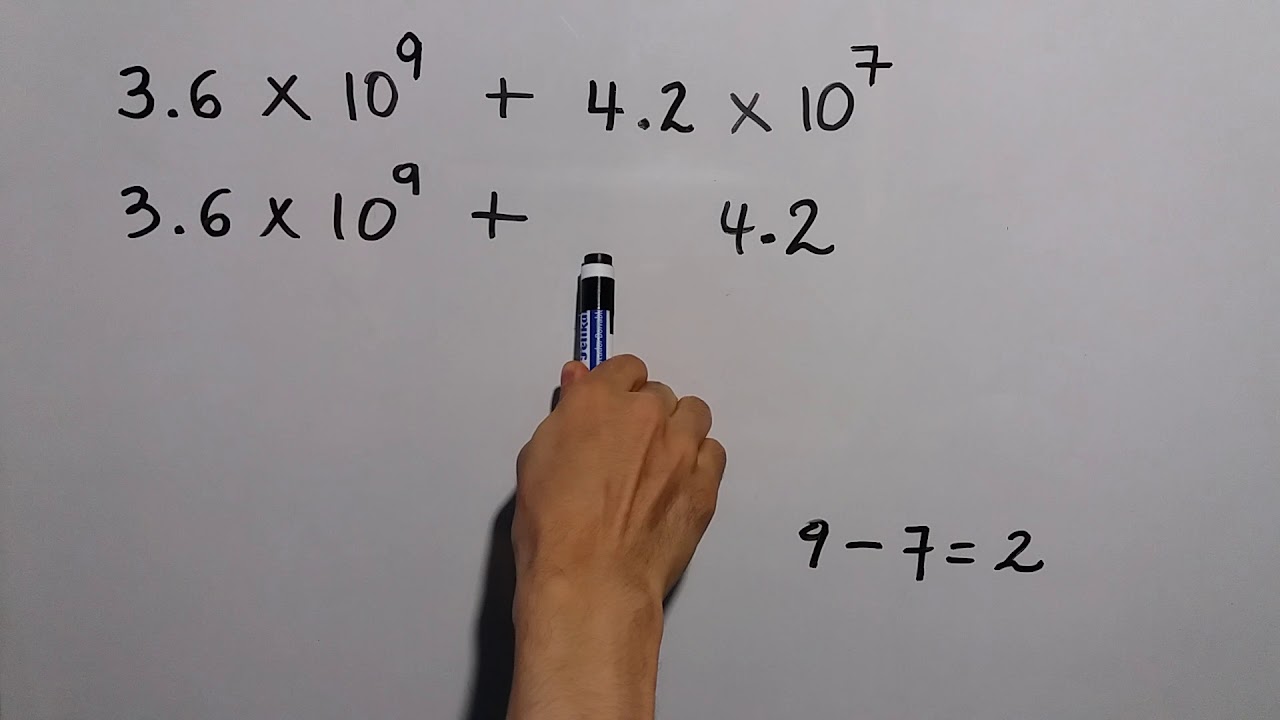 3.6 × 10⁹ + 4.2 × 10⁷
3.6 × 10⁹ + 4.2
9 - 7 = 2